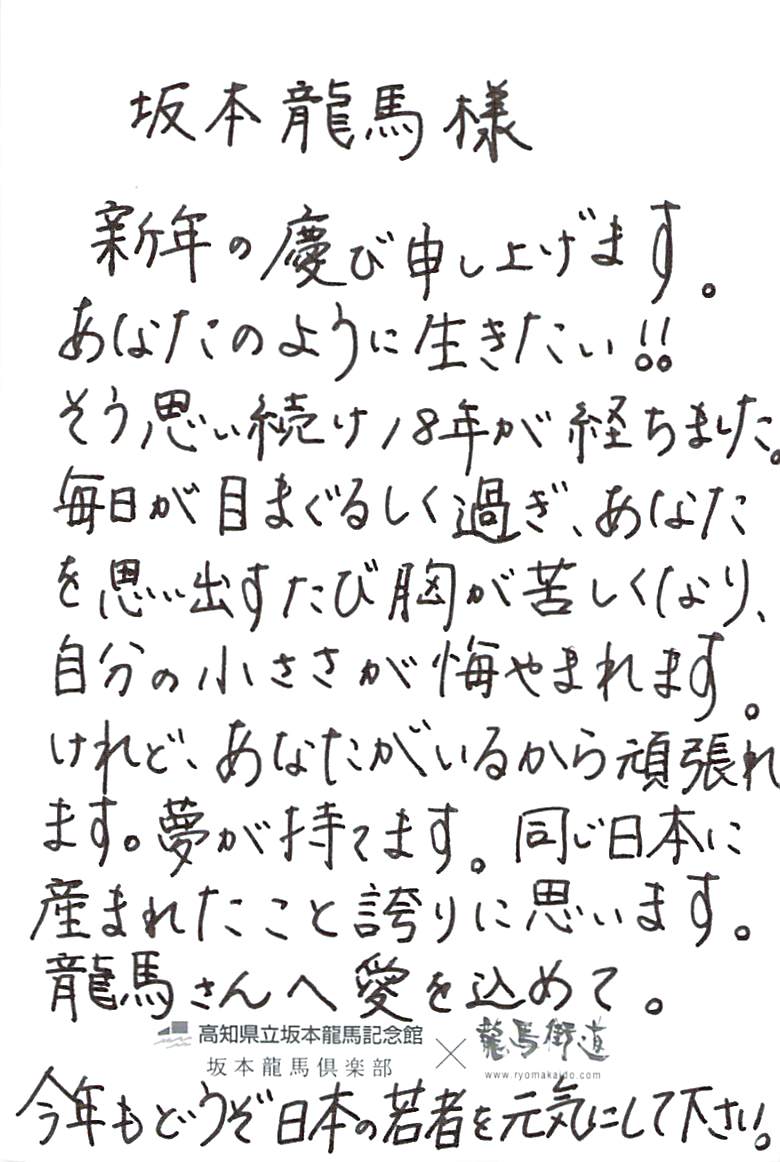 坂本龍馬様
新年の慶び申し上げます。
あなたのように生きたい!!
そう思い続け18年が経ちました。
毎日が目まぐるしく過ぎ、あなた
を思い出すたび胸が苦しくなり、
自分の小ささが悔やまれます。
けれど、あなたがいるから頑張れ
ます。夢が持てます。同じ日本に
産まれたこと誇りに思います。
龍馬さんへ愛を込めて。
高知県立坂本龍馬記念館
坂本龍馬倶楽部
×
龍馬街道
www.ryomakaido.com
今年もどうぞ日本の若者を元気にして下さい。